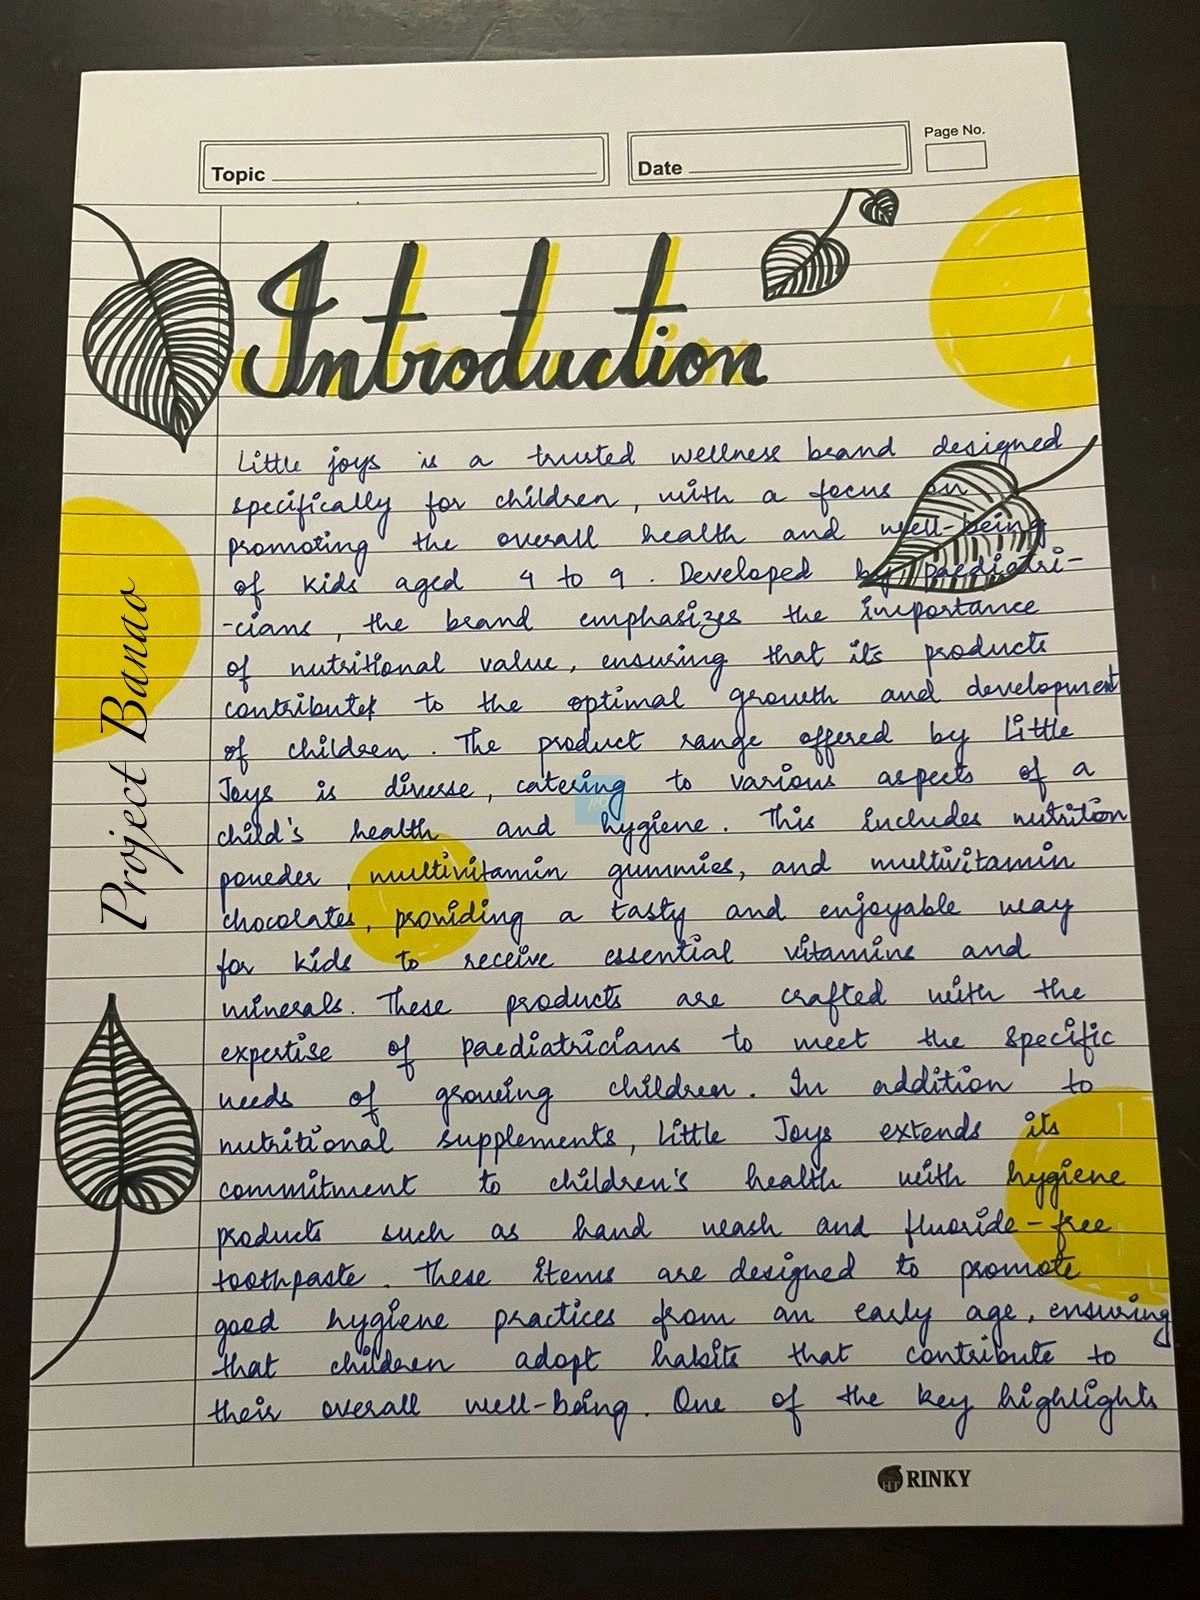 Topic
Date
Page No.
Introduction
Little joys is a trusted wellness brand designed
specifically for children, with a focus on
promoting the overall health and well-being
of kids aged 4 to 9. Developed by paediatri-
-cians, the brand emphasizes the importance
of nutritional value, ensuring that its products
contribute to the optimal growth and development
of children. The product range offered by Little
Joys is diverse, catering to various aspects of a
child's health and hygiene. This includes nutrition
powder, multivitamin gummies, and multivitamin
chocolates, providing a tasty and enjoyable way
for kids to receive essential vitamins and
minerals. These products are crafted with the
expertise of paediatricians to meet the specific
needs of growing children. In addition to
nutritional supplements, Little Joys extends its
commitment to children's health with hygiene
products such as hand wash and fluoride-free
toothpaste. These items are designed to promote
good hygiene practices from an early age, ensuring
that children adopt habits that contribute to
their overall well-being. One of the key highlights
Project Banao
RINKY